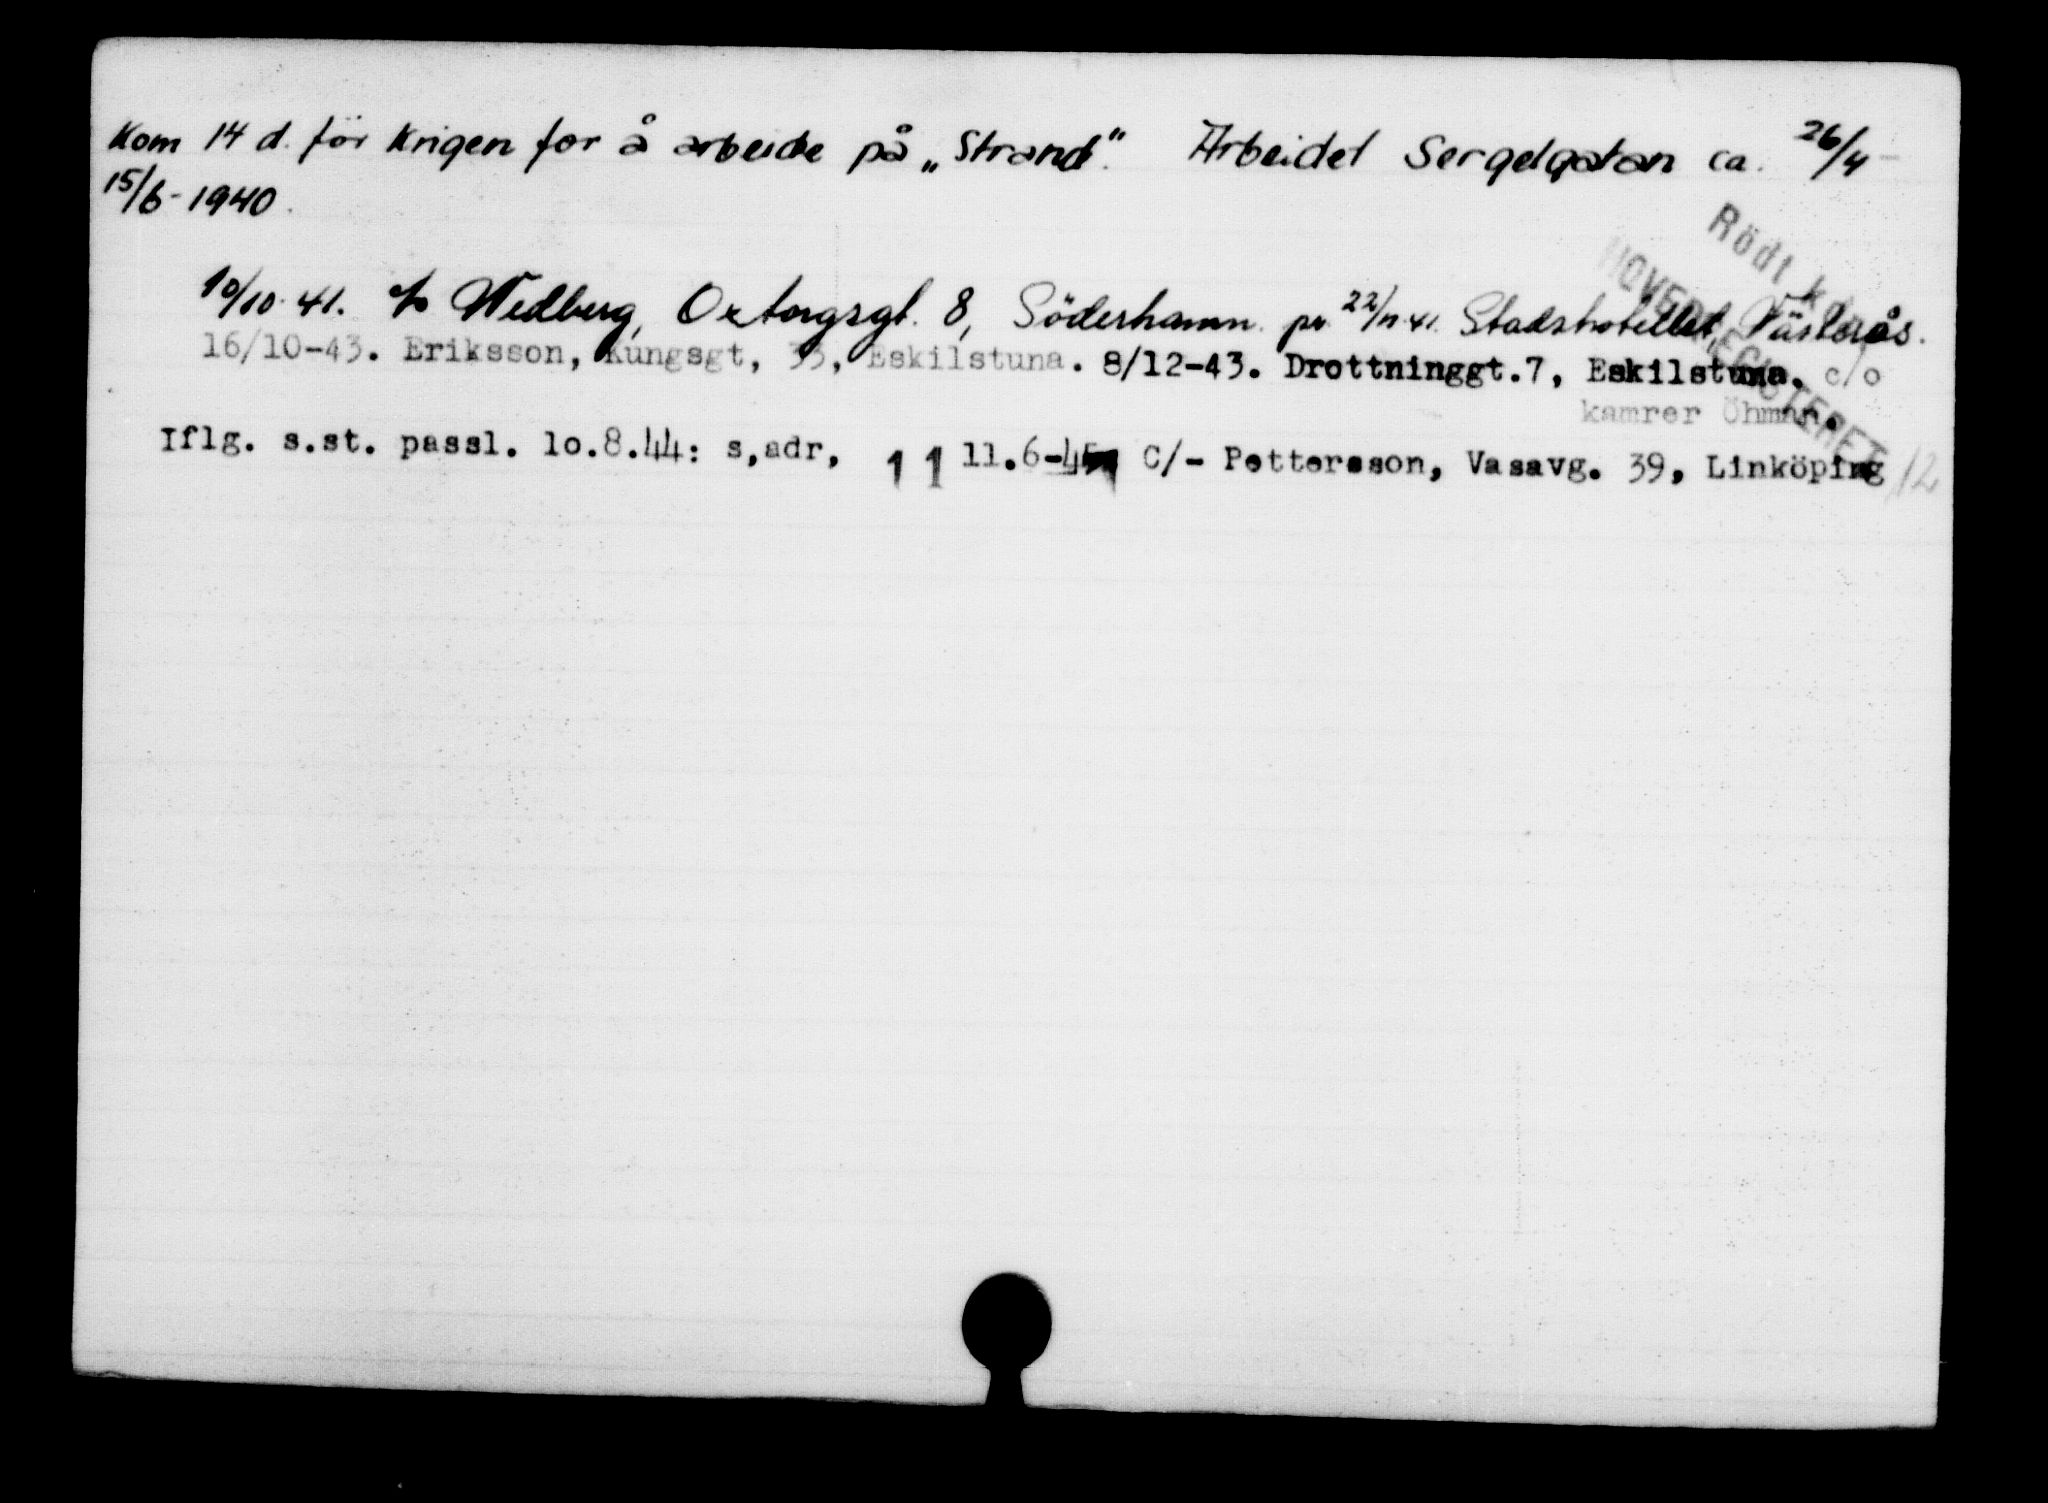 Kom 14 d. för Krigen for å arbeide på „Strand". Arbeidet Sergelgatan ca. 26/4 -
15/6 - 1940.
Rödt Kors
HOVEDREGISTERET
10/10-41. c/o Wedberg, Oxtorgsgt. 8, Söderhamn. pr. 22/11-41. Stadshotellet, Västerås.
16/10-43. Eriksson, Kungsgt, 33, Eskilstuna. 8/12-43. Drottninggt.7, Eskilstuna. c/o
kamrer Öhman.
Iflg. s.st. passl. 10.8.44: s,adr, 11 11.6-45 C/- Pettersson, Vasavg. 39, Linköping /12